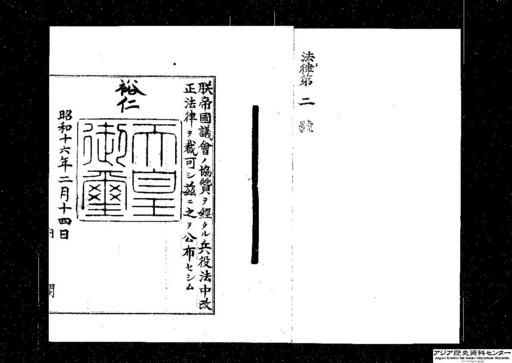 法律第二號
朕帝國議會ノ協賛ヲ經タル兵役法中改
正法律ヲ裁可シ茲ニ之ヲ公布セシム
裕仁
天皇
御璽
昭和十六年二月十四日
内閣
アジア歴史資料センター
Japan Center for Asian Historical Records